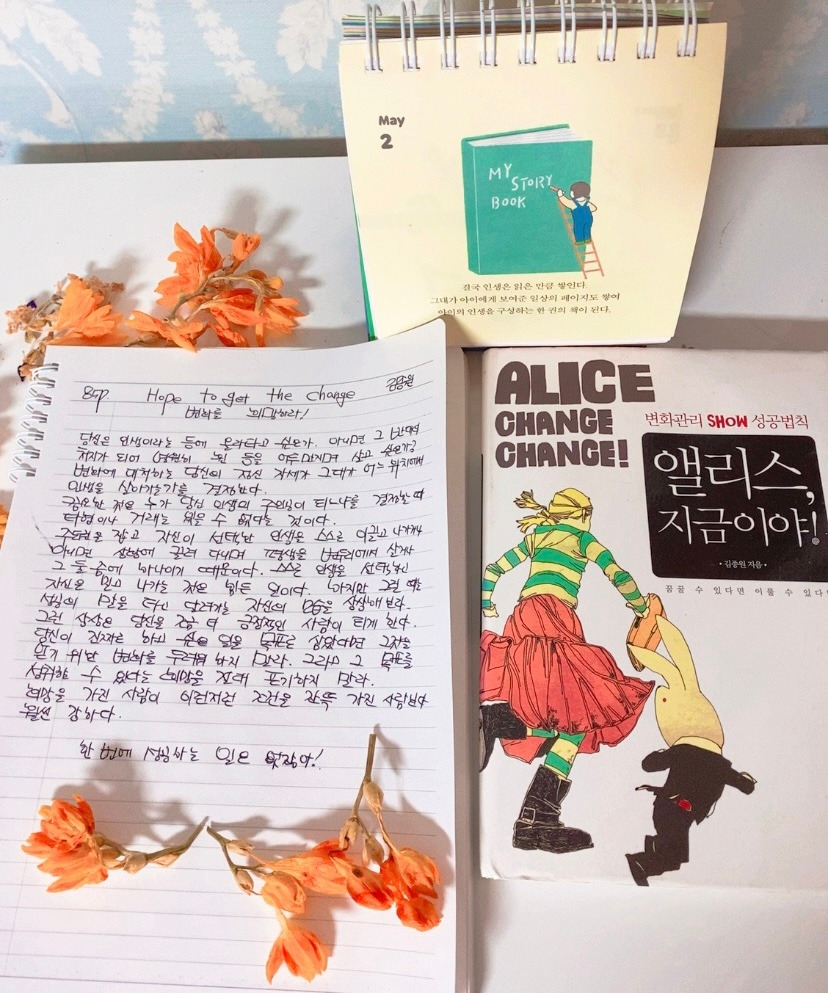 May
2
MY
STORY
BOOK
결국 인생은 읽은 만큼 쌓인다.
그대가 아이에게 보여준 일상의 페이지도 쌓여
아이의 인생을 구성하는 한 권의 책이 된다.
85p. Hope to get the change 김종원
변화를 희망하라!
당신은 인생이라는 등에 올라타고 싶은가. 아니면 그 반대의
처지가 되어 영원히 누군 등을 어루만지면서 살고 싶은가?
변화에 대처하는 당신의 정신 자세가 그대가 어느 위치에서
인생을 살아가는가를 결정한다.
중요한 것은 누가 당신 인생의 주인이 되느냐를 결정할 때
타협이나 거래는 있을 수 없다는 것이다.
주도권을 잡고 자신이 선택한 인생을 스스로 이끌고 나가거나
아니면 상황에 끌려 다니며 평생을 변두리에서 살거나
그 둘 중에 하나이기 때문이다. 스스로 인생을 선택하고
자신을 믿고 나가는 것은 힘든 일이다. 하지만 그럴 때는
성공의 말을 타고 달려가는 자신의 모습을 상상해 보라.
그런 상상은 당신을 좀 더 긍정적인 사람이 되게 한다.
당신이 진짜로 하고 싶은 일을 목표로 삼았다면 그것을
얻기 위한 변화를 두려워 하지 말라. 그리고 그 목표를
성취할 수 있다는 희망을 절대 포기하지 말라.
희망을 가진 사람이 이런저런 조건을 잔뜩 가진 사람보다
훨씬 강하다.
한 번에 성공하는 일은 없잖아!
ALICE
CHANGE
CHANGE!
변화관리 SHOW 성공법칙
앨리스,
지금이야!
·김종원 지음·
꿈꿀 수 있다면 이룰 수 있다!